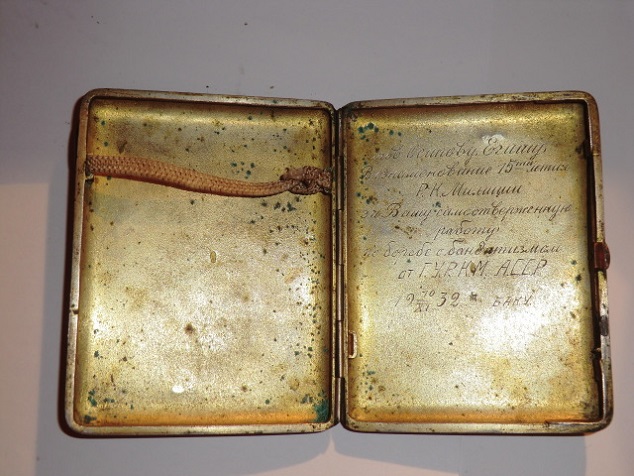 Егишу
В ознаменование 15тилетия
Р.К.Милиции
за Вашу самоотверженную
работу
по борьбе с бандитизмом
от Г.У.Р.К.М. АССР
19 10/XI 32 г. БАКУ